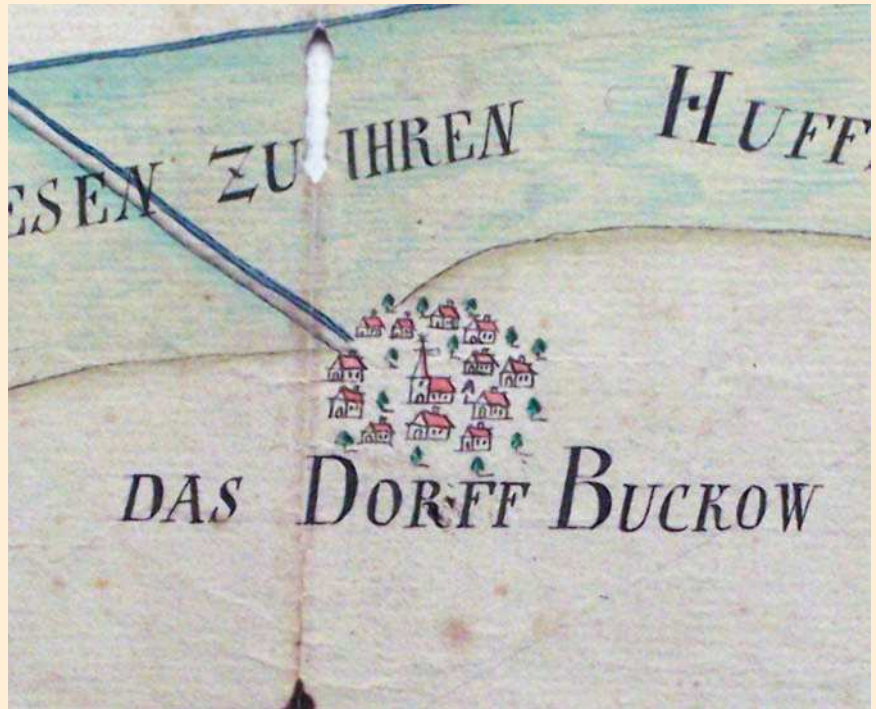 ESEN ZU IHREN HUFF
DAS DORFF BUCKOW